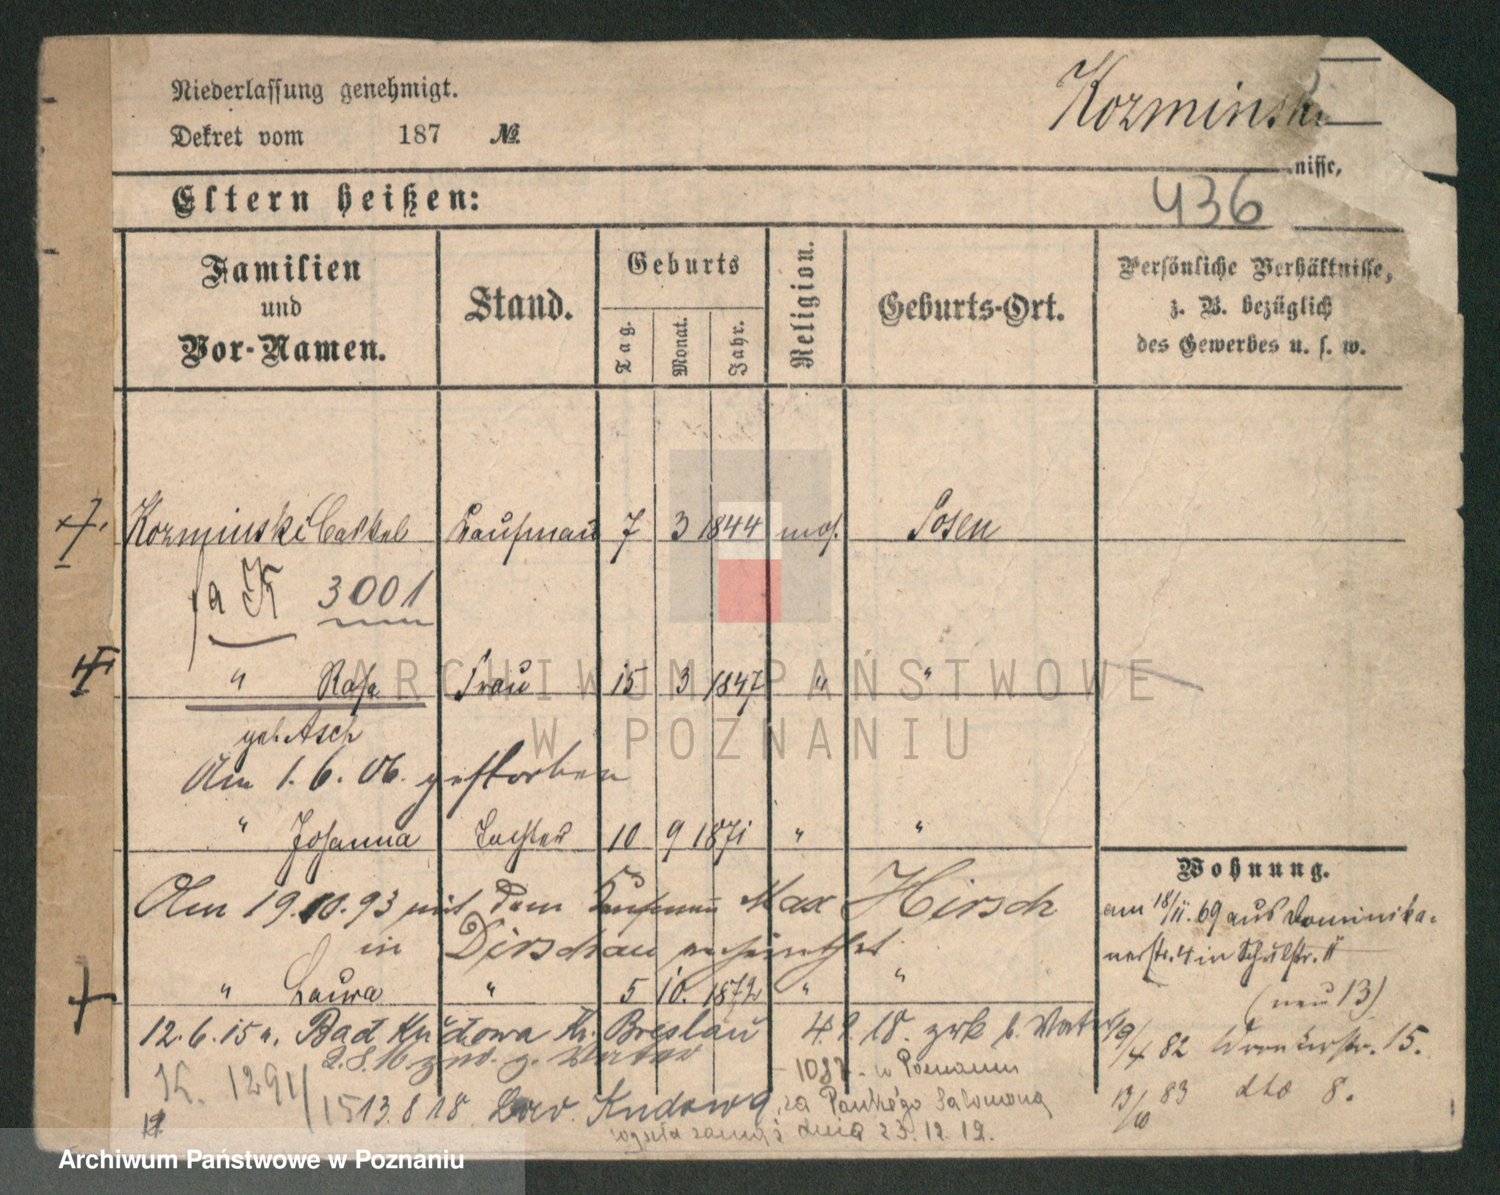 Niederlassung genehmigt.
Dekret vom 187 №
Kozminski
nisse,
Eltern heißen:
436
Familien und Vor-Namen.
Stand.
Geburts
Tag.
Monat.
Jahr.
Religion.
Geburts-Ort.
Persönliche Verhältnisse,
z. B. bezüglich
des Gewerbes u. s. w.
Kozminski Caskel Kaufmann 7 3 1844 mos. Posen
K 3001
" Rosa Frau 15 3 1847 " "
geb. Asch
Am 1. 6. 06. gestorben
" Johanna Tochter 10 9 1871 " "
Am 19. 93 mit dem Kaufmann Max Hirsch
in Dirschau verheirathet
" Laura " 5 10. 1872 " "
12. 6. 15 n. Bad Kudowa Kr. Breslau 4. 9. 18. zrk b. Vater
K. 1291/15 13. 8 18 Kudowa
1087 w Poznaniu
za Salomona
wyszła zamąż dnia 23. 12. 19.
Wohnung.
am 18/11. 69 aus Dominika-
nerstr. 4 in Schulstr. 11
(neu 13)
19/4 82 Wronkerstr. 15.
13/10 83 dto 8.
ARCHIWUM PAŃSTWOWE
W POZNANIU
Archiwum Państwowe w Poznaniu